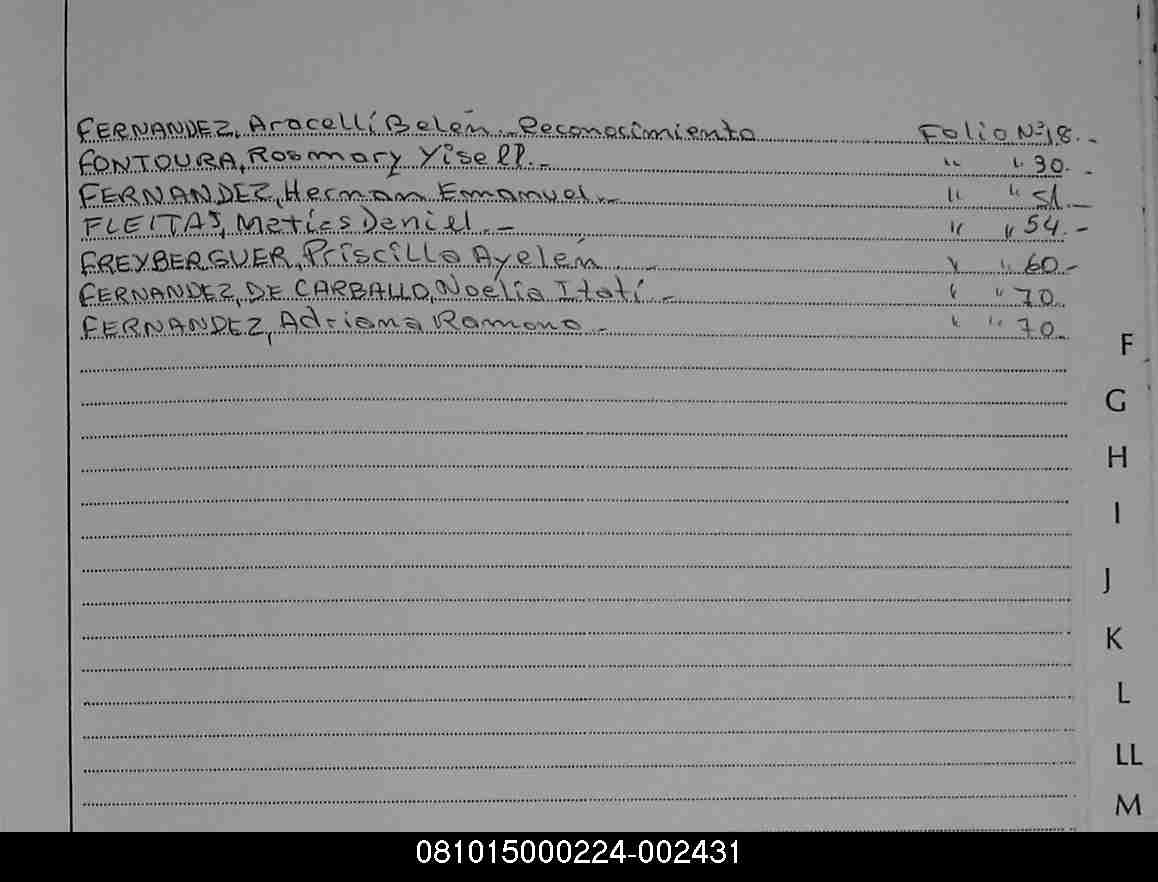 FERNANDEZ, Aracelli Belén.- Reconocimiento Folio Nº 18.-
FONTOURA, Rosmary Yisell.- " " 30.-
FERNANDEZ, Hernan Emanuel.- " " 51.-
FLEITAS, Matias Daniel.- " " 54.-
FREYBERGUER, Priscilla Ayelén.- " " 60.-
FERNANDEZ, DE CARBALLO, Noelia Itatí.- " " 70.
FERNANDEZ, Adriana Ramona.- " " 70.-
F
G
H
I
J
K
L
LL
M
081015000224-002431